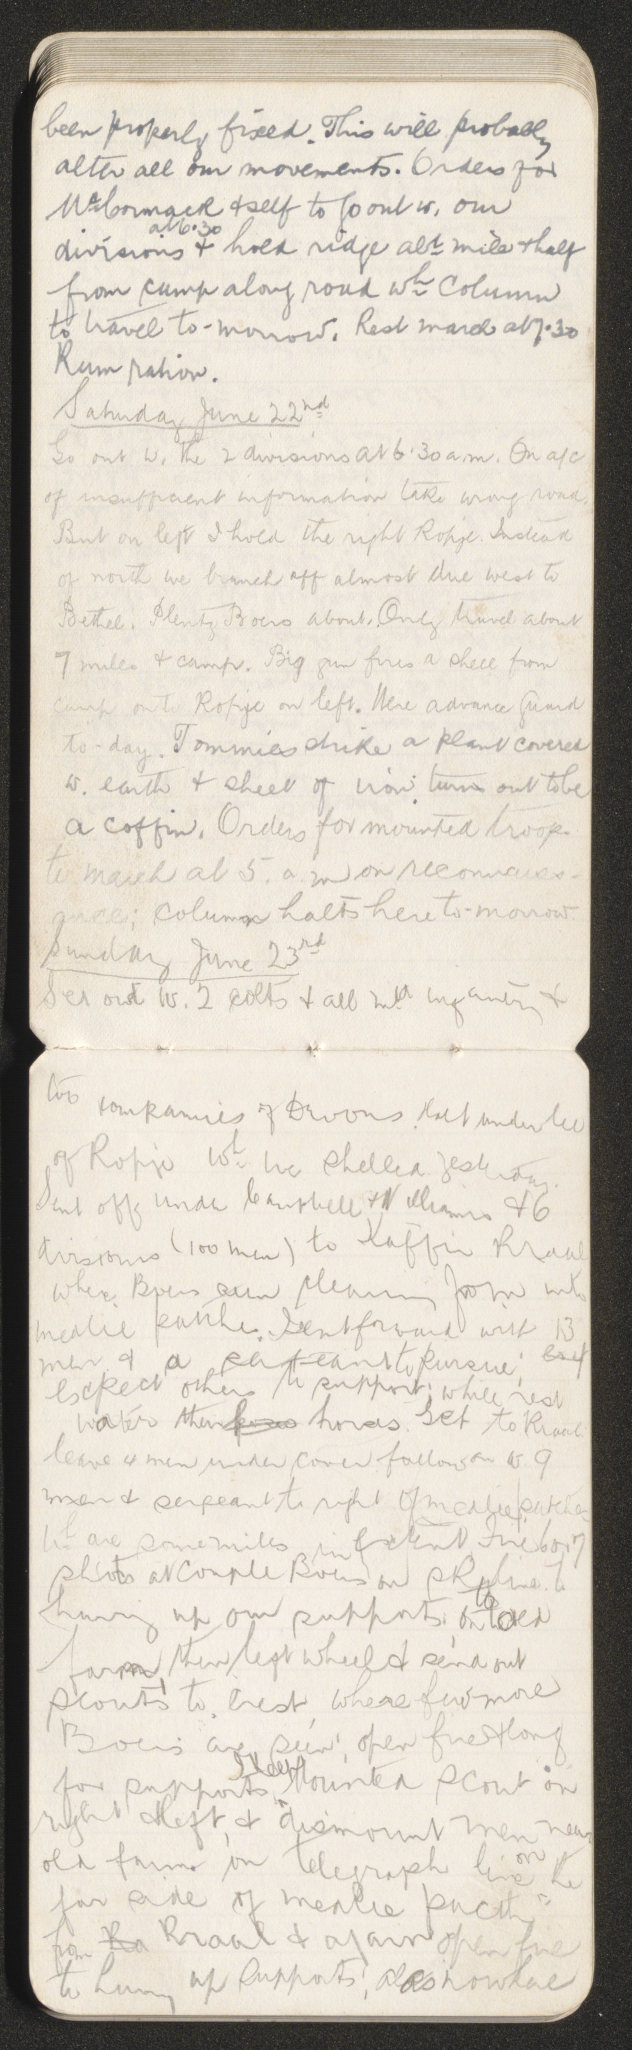 been properly fixed. This will probably
alter all our movements. Orders for
McCormack & self to go out w. our
divisions at 6.30 & hold ridge abt mile & half
from camp along road wh column
to travel to-morrow. Rest march at 7.30
Rum ration.
Saturday June 22nd
Go out w. the 2 divisions at 6.30 a.m. On a/c
of insufficient information take wrong road.
But on left I hold the right Kopje. Instead
of north we branch off almost due west to
Bethel. Plenty Boers about. Only travel about
7 miles & camp. Big gun fires a shell from
camp onto Kopje on left. Were advance guard
to-day. Tommies strike a plant covered
w. earth & sheet of iron; turns out to be
a coffin. Orders for mounted troops
to march at 5. a.m on reconnaiss-
ance; column halts here to-morrow
Sunday June 23rd
Set out w. 2 colts & all mtd infantry &
two companies of Devons. Halt under lee
of Kopje wh we shelled yesterday.
Sent off under Campbell & Williams & 6
divisions (100 men) to Kaffir Kraal
where Boers seen clearing from into
mealie patches. I sent forward with 13
men & a sergeant to pursue;
expect others to support; while rest
water their horses. Get to Kraal
leave 4 men under cover follow on w. 9
men & sergeant to right of mealie patches
wh are some miles in extent Fire 6 or 7
shots at couple Boers on skyline to
hurry up our supports; on to old
farm, then left wheel & send out
scouts to crest where few more
Boers are seen; open fire & long
for supports. Mounted scout on
right & left, & dismount men near
old farm on telegraph line on the
far side of mealie patch
from Kraal & again open fire
to hurry up supports, also nowhere